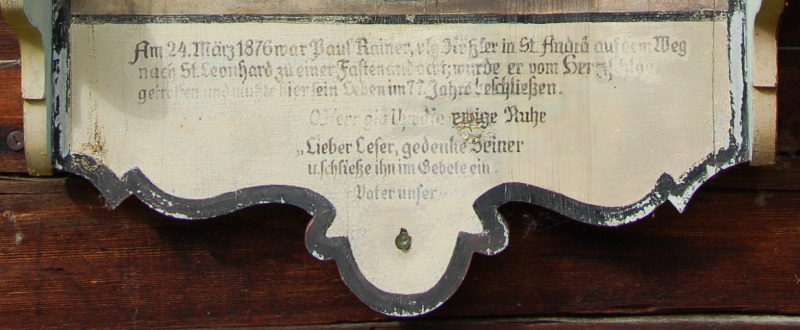 Am 24. März 1876 war Paul Rainer, vlg Rößler in St. Andrä auf dem Weg
nach St. Leonhard zu einer Fastenandacht, wurde er vom Herzschlag
getroffen und mußte hier sein Leben im 77. Jahre beschließen.
O Herr gib ihm die ewige Ruhe
„Lieber Leser, gedenke Seiner
u. schließe ihn im Gebete ein.
Vater unser